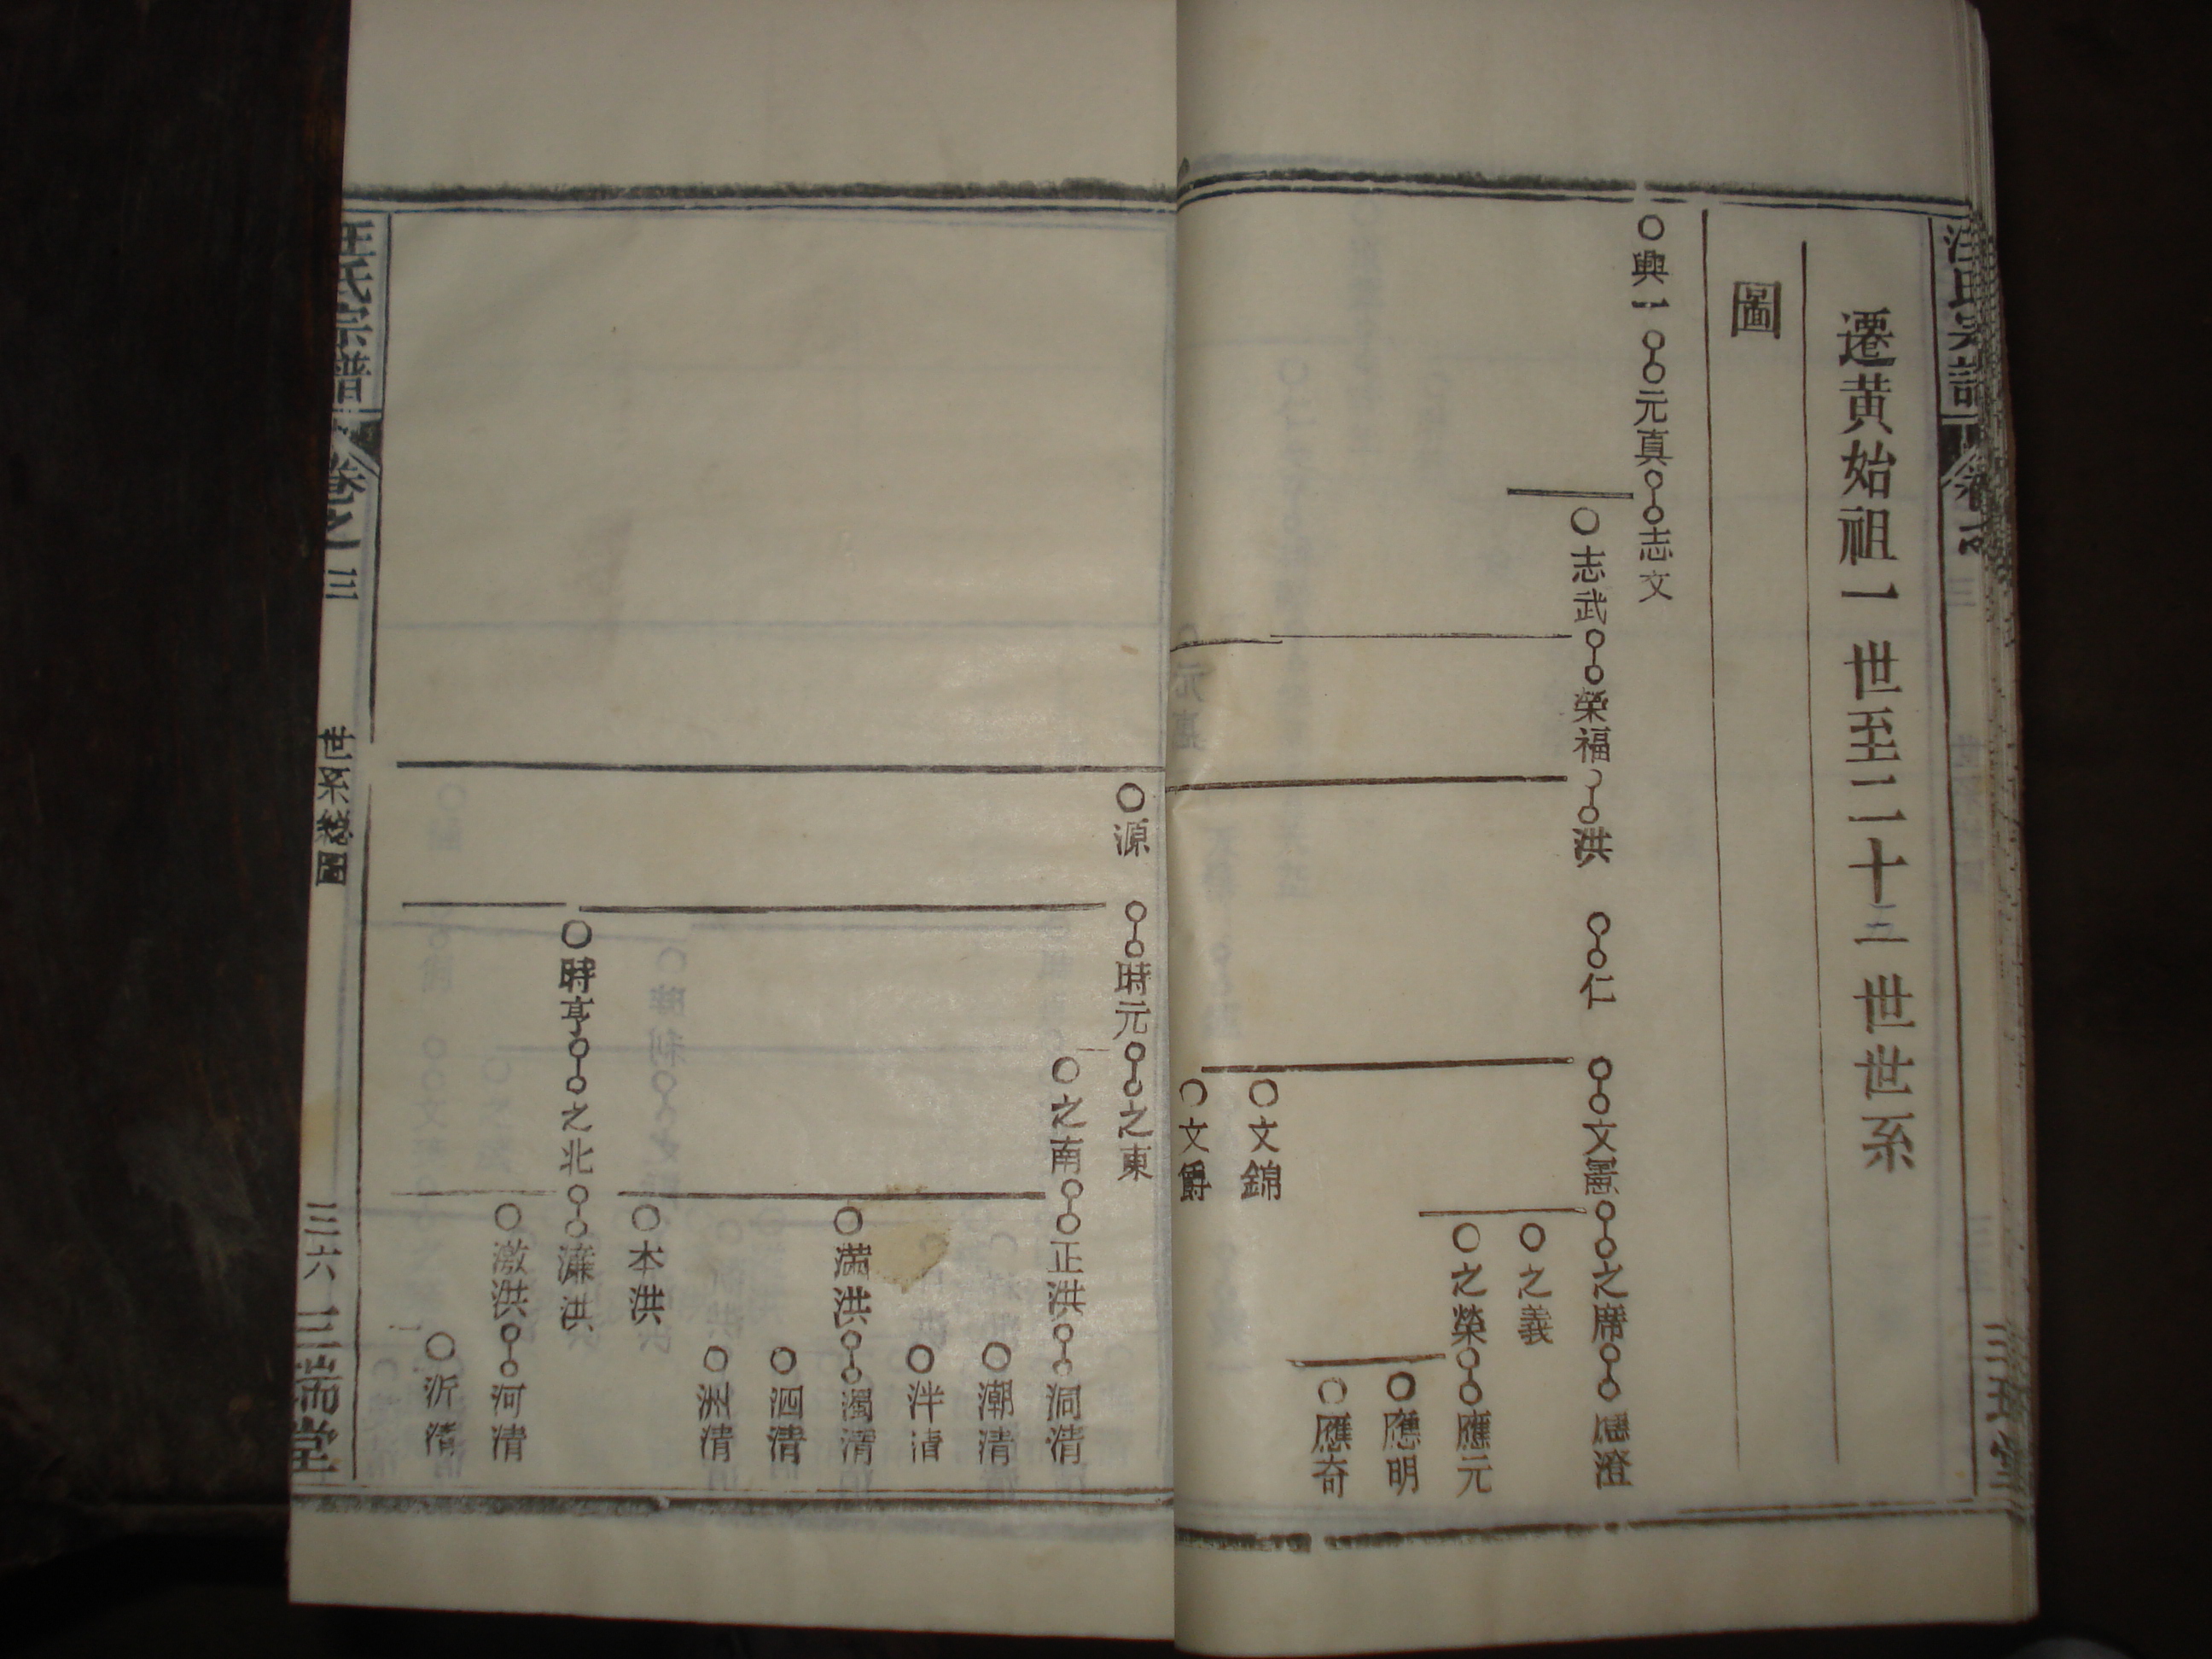 汪氏宗譜
卷之三
遷黄始祖一世至二十二世世系
圖
興一
元真
志文
志武
榮福
洪
仁
文憲
之席
應澄
之義
之榮
應元
應明
應奇
文錦
文爵
源
時元
之東
之南
正洪
洞清
潮清
泮清
满洪
濁清
泗清
洲清
本洪
時亨
之北
濂洪
激洪
河清
沂清
汪氏宗譜
卷之三
世系總圖
三六
三瑞堂